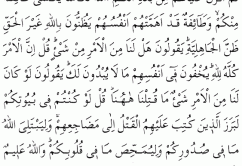 مِنكُمْ وَطَائِفَةٌ قَدْ أَهَمَّتْهُمْ أَنفُسُهُمْ يَظُنُّونَ بِاللَّهِ غَيْرَ الْحَقِّ
ظَنَّ الْجَاهِلِيَّةِ يَقُولُونَ هَل لَّنَا مِنَ الْأَمْرِ مِن شَيْءٍ قُلْ إِنَّ الْأَمْرَ
كُلَّهُ لِلَّهِ يُخْفُونَ فِي أَنفُسِهِم مَّا لَا يُبْدُونَ لَكَ يَقُولُونَ لَوْ كَانَ
لَنَا مِنَ الْأَمْرِ شَيْءٌ مَّا قُتِلْنَا هَاهُنَا قُل لَّوْ كُنتُمْ فِي بُيُوتِكُمْ
لَبَرَزَ الَّذِينَ كُتِبَ عَلَيْهِمُ الْقَتْلُ إِلَىٰ مَضَاجِعِهِمْ وَلِيَبْتَلِيَ اللَّهُ
مَا فِي صُدُورِكُمْ وَلِيُمَحِّصَ مَا فِي قُلُوبِكُمْ وَاللَّهُ عَلِيمٌ